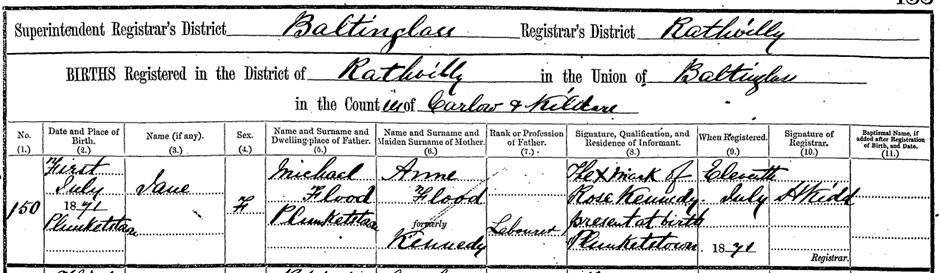 Superintendent Registrar's District Baltinglass Registrar's District Rathvilly
BIRTHS Registered in the District of Rathvilly in the Union of Baltinglass
in the Counties of Carlow & Kildare
No. (1.) Date and Place of Birth. (2.) Name (if any). (3.) Sex. (4.) Name and Surname and Dwelling-place of Father. (5.) Name and Surname and Maiden Surname of Mother. (6.) Rank or Profession of Father. (7.) Signature, Qualification, and Residence of Informant. (8.) When Registered. (9.) Signature of Registrar. (10.) Baptismal Name, if added after Registration of Birth, and Date. (11.)
150
First
July
1871
Plunketstown
Jane
F
Michael
Flood
Plunketstown
Anne
Flood
formerly
Kennedy
Labourer
The X mark of
Rose Kennedy
present at birth
Plunketstown
Eleventh
July
1871
H Kidd
Registrar.